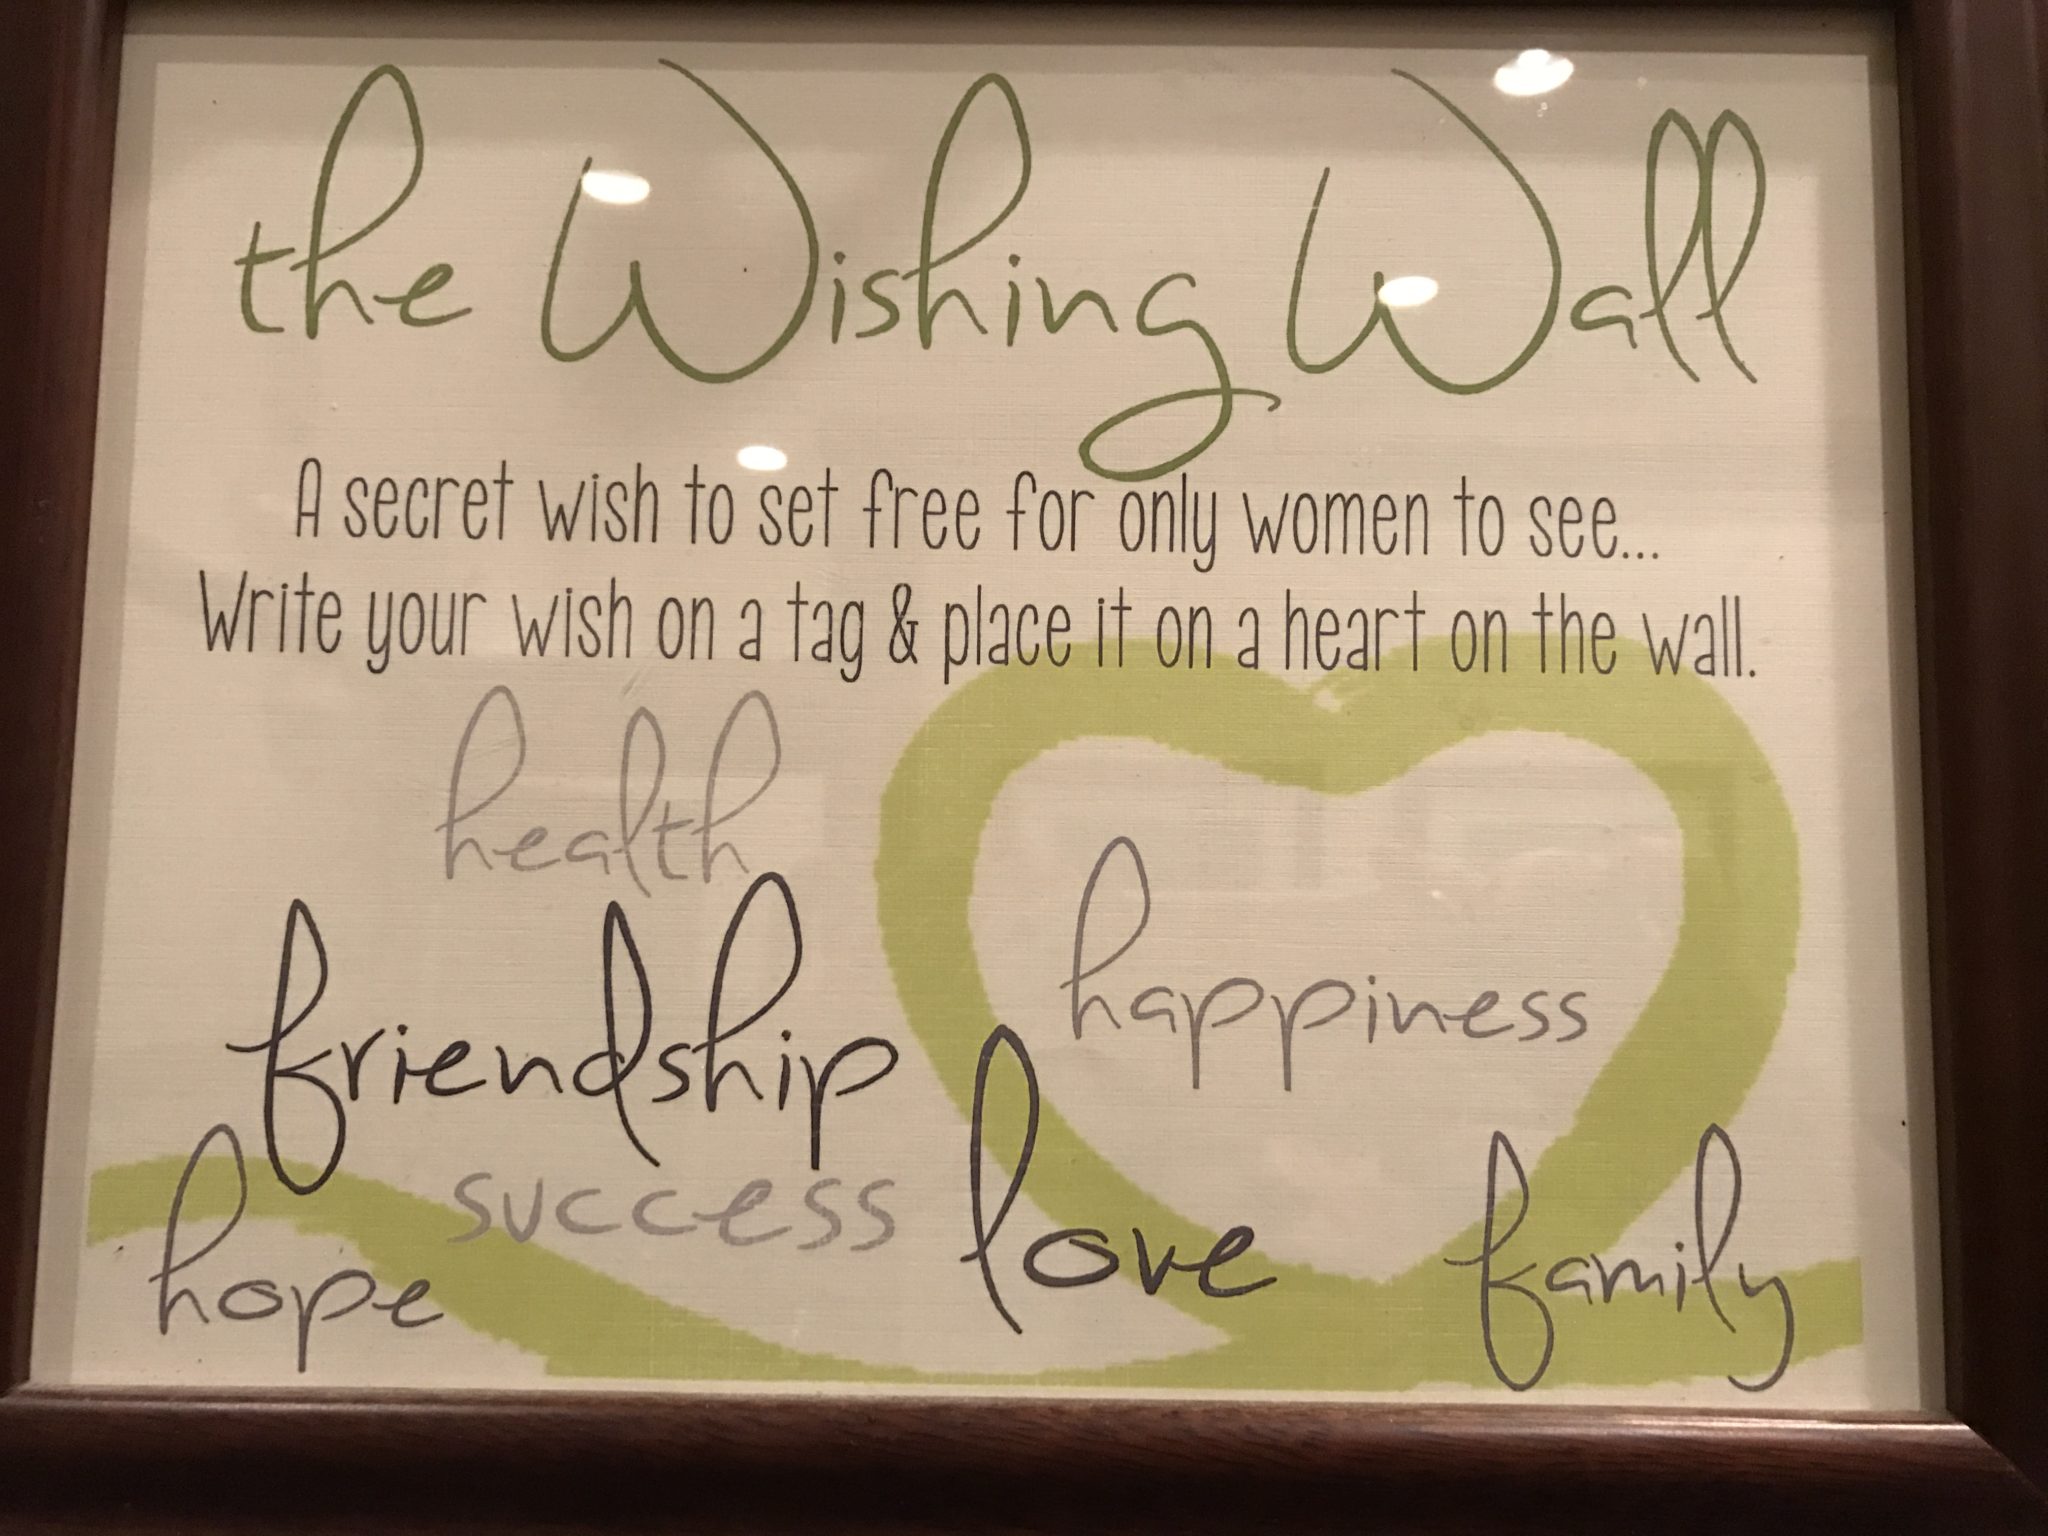 the Wishing Wall
A secret wish to set free for only women to see...
Write your wish on a tag & place it on a heart on the wall.
health
happiness
friendship
success
love
hope
family